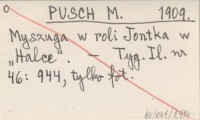 O
PUSCH M. 1909.
Myszuga w roli Jontka w
„Halce". — Tyg. Il. nr
46: 944, tylko fot.